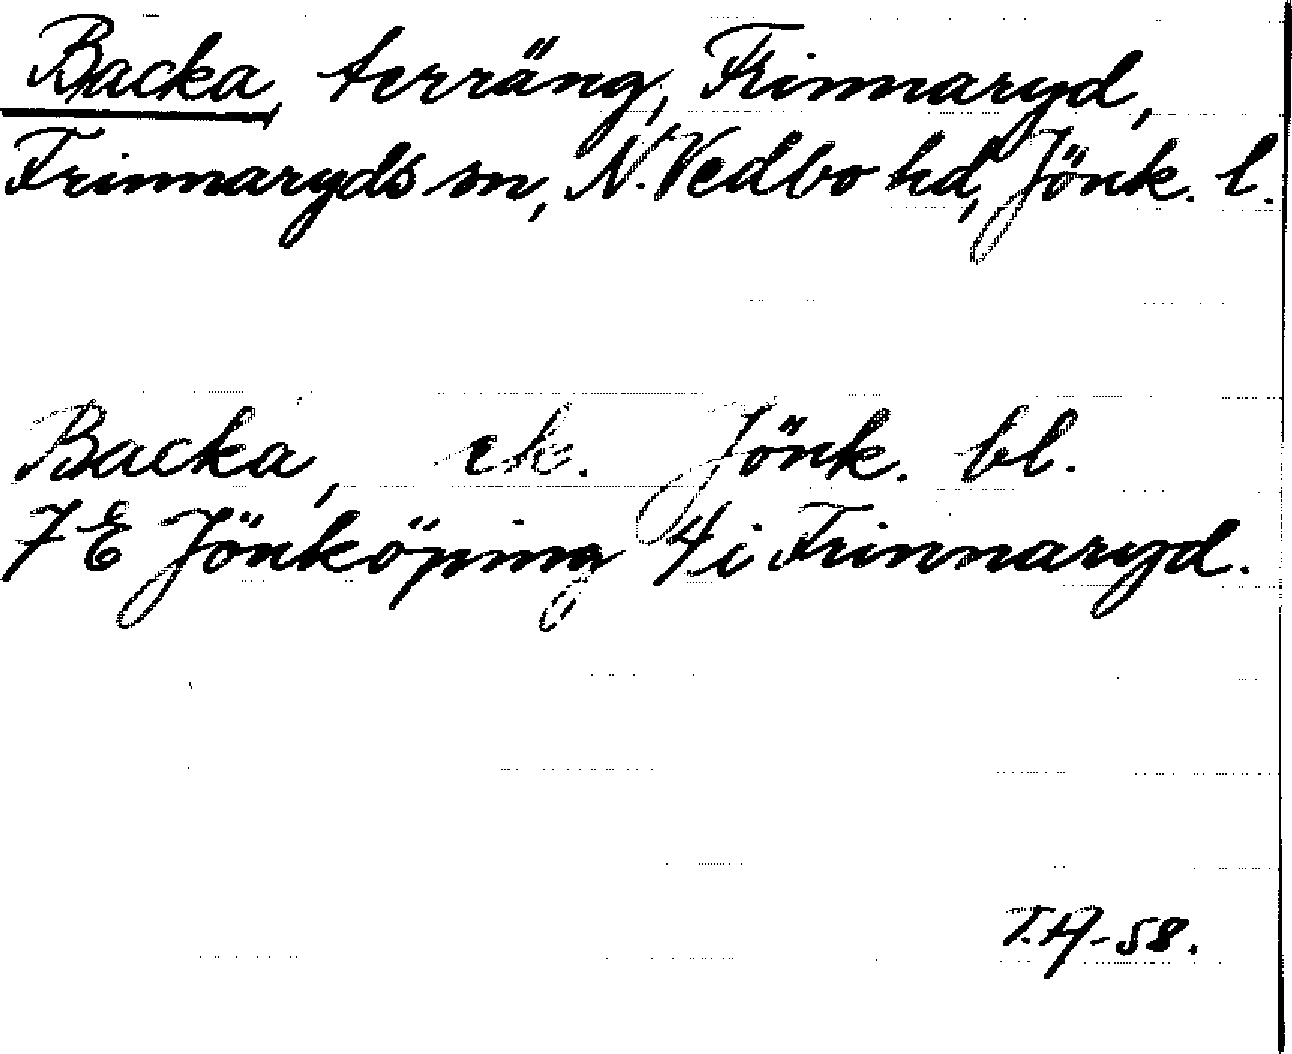 Backa, terräng, Frinnaryd,
Frinnaryds sn, N. Vedbo hd, Jönk. l.
Backa, ek. Jönk. bl.
7E Jönköping 4i Frinnaryd.
T.H-58.